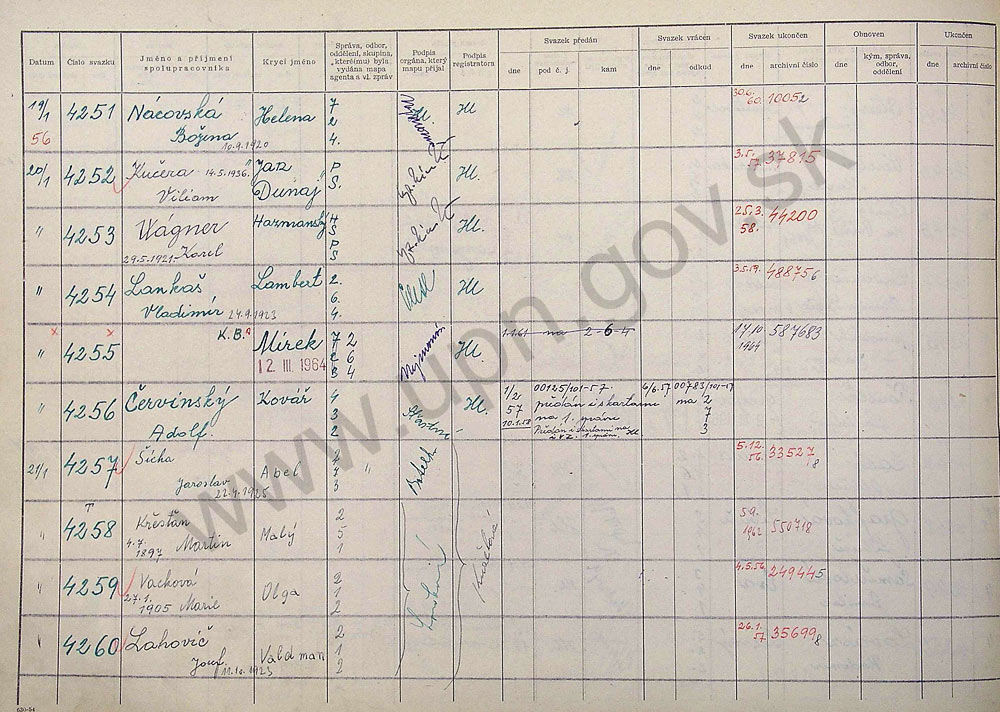 Datum
Číslo svazku
Jméno a příjmení spolupracovníka
Krycí jméno
Správa, odbor, oddělení, skupina, které(mu) byla vydána mapa agenta a vl. zpráv
Podpis orgána, který mapu přijal
Podpis registratora
Svazek předán
dne pod č. j. kam
Svazek vrácen
dne odkud
Svazek ukončen
dne archivní číslo
Obnoven
dne kým, správa, odbor, oddělení
Ukončen
dne archivní číslo
19/1 56 4251 Nácovská Božena 10.9.1920 Helena 7 2 4. Hl. 30.6. 60. 10052
20/1 4252 Kučera 14.5.1936. Viliam "Jan Dunaj" P S. Hl. 3.5. 57. 37815
" 4253 Wágner 29.5.1921. Karel Harmanský H S P S Hl. 25.3. 58. 44200
" 4254 Lankaš Vladimír 24.9.1923 Lambert 2. 6. 4. Hl. 488756
" 4255 K.B. Mirek 12. III. 1964 7 2 2 6 B 4 Hl. 1.1.61 na 2-6-4 17/10 1964 587683
" 4256 Červínský Adolf. Kovář 4 3 2 Hl. 1/2 57 00125/101-57. předán i s kartami na 1. správu 10.1.58 Předán i s kartami na 6/6.57 00783/101-57 na 2 7 3
21/1 4257 Šícha Jaroslav 22.4.1925 Abel 3 5.12. 56. 335278
" 4258 T Křesťan 4.7. 1897 Martin Malý 2 5 1 5.9. 1962 550718
" 4259 Vacková 27.1. 1905 Marie Olga 2 1 2 4.5.56. 249445
" 4260 Lahovič Josef. 11.10.1923 Valdman 2 1 2 26.1. 57 356998
www.upn.gov.sk
630-54